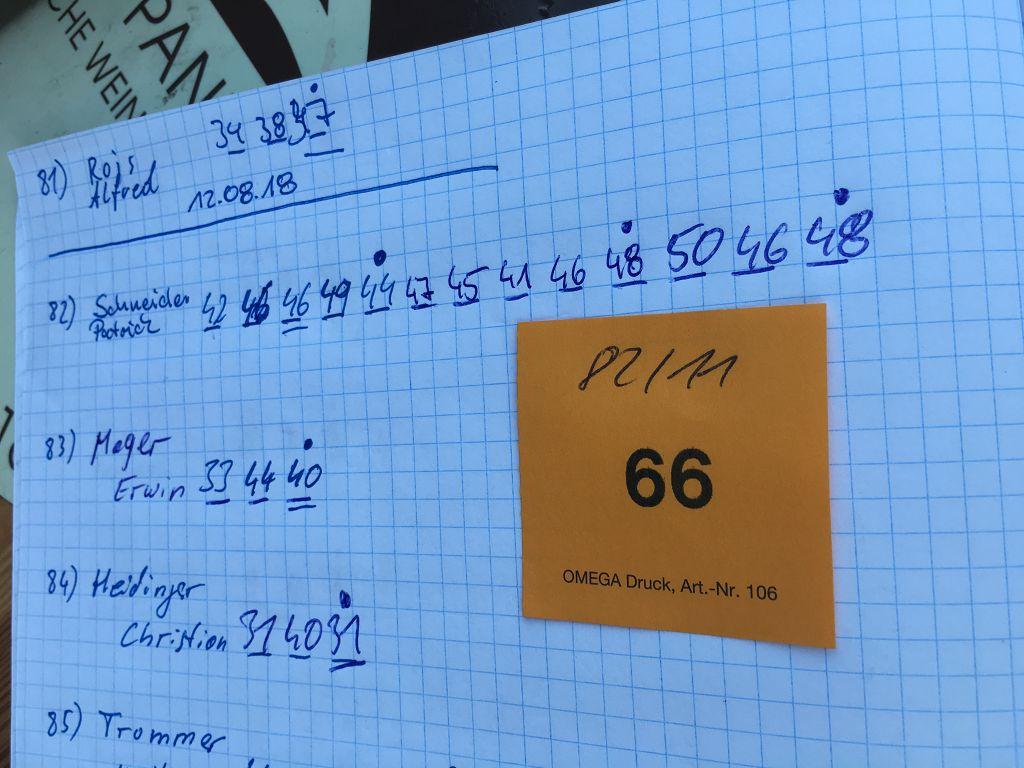 PAN
CHE WEIN
81) Rojs 34 38 37
Alfred 12.08.18
82) Schneider 42 46 46 49 44 47 45 41 46 48 50 46 48
Patrick
83) Mager
Erwin 33 44 40
84) Heidinger
Christian 31 40 31
85) Trummer
82/11
66
OMEGA Druck, Art.-Nr. 106